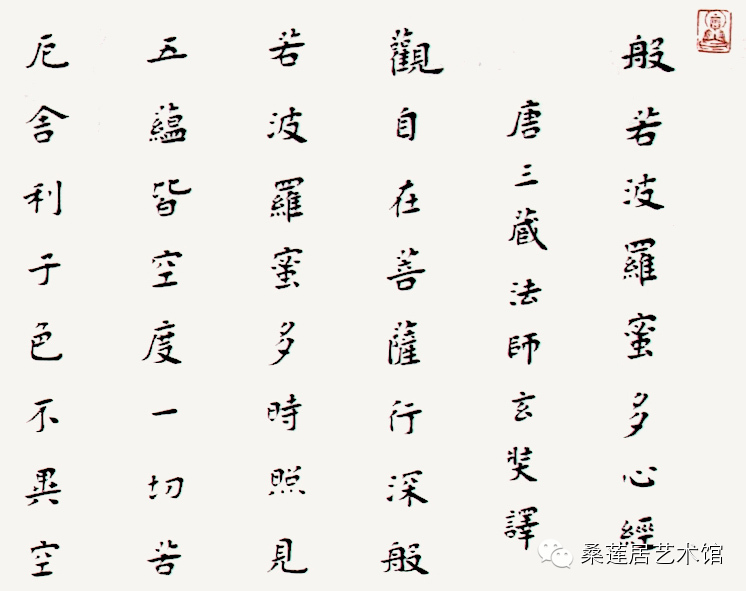 般若波羅蜜多心經
唐三藏法師玄奘譯
觀自在菩薩行深般
若波羅蜜多時照見
五蘊皆空度一切苦
厄舍利子色不異空
桑莲居艺术馆